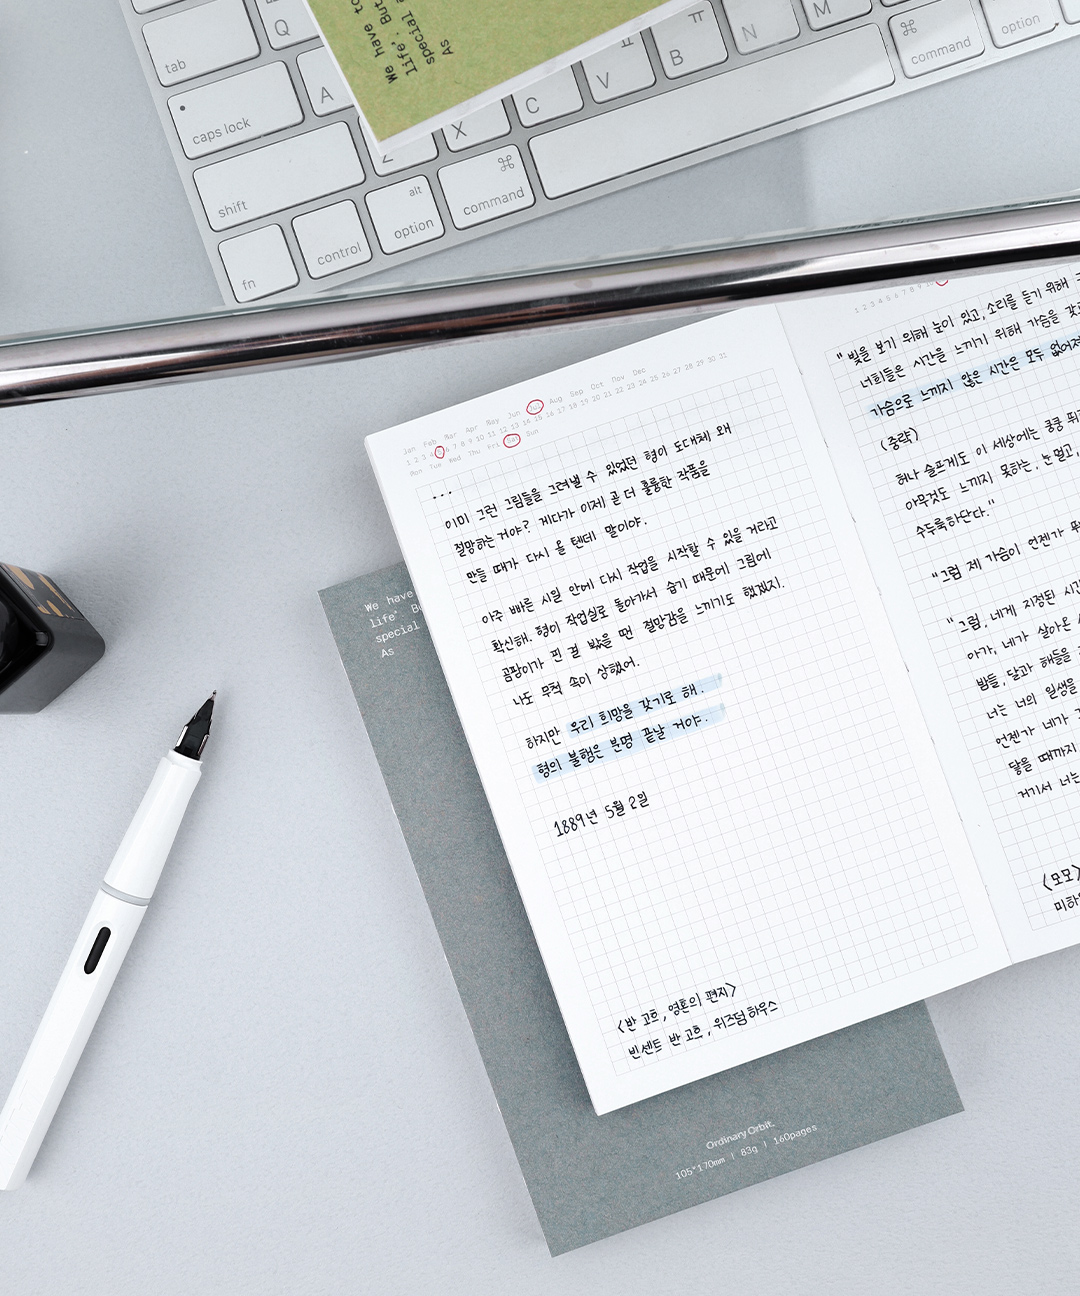 We have to
life'. But
special a
As
tab
Q
caps lock
A
shift
Z
X
C
V
ㅠ
B
N
M
fn
control
alt
option
⌘
command
⌘
command
option
We have
life'
special
As
Jan Feb Mar Apr May Jun Jul Aug Sep Oct Nov Dec
1 2 3 4 5 6 7 8 9 10 11 12 13 14 15 16 17 18 19 20 21 22 23 24 25 26 27 28 29 30 31
Mon Tue Wed Thu Fri Sat Sun
...
이미 그런 그림들을 그려낼 수 있었던 형이 도대체 왜
절망하는 거야? 게다가 이제 곧 더 훌륭한 작품을
만들 때가 다시 올 텐데 말이야.
아주 빠른 시일 안에 다시 작업을 시작할 수 있을 거라고
확신해. 형이 작업실로 돌아가서 습기 때문에 그림에
곰팡이가 핀 걸 봤을 땐 절망감을 느끼기도 했겠지.
나도 무척 속이 상했어.
하지만 우리 희망을 갖기로 해.
형의 불행은 분명 끝날 거야.
1889년 5월 2일
<반 고흐, 영혼의 편지>
빈센트 반 고흐, 위즈덤하우스
1 2 3 4 5 6 7 8 9 10
"빛을 보기 위해 눈이 있고, 소리를 듣기 위해
너희들은 시간을 느끼기 위해 가슴을 갖고
가슴으로 느끼지 않은 시간은 모두 없어져
(중략)
허나 슬프게도 이 세상에는 쿵쿵 뛰
아무것도 느끼지 못하는, 눈 멀고,
수두룩하단다."
"그럼 제 가슴이 언젠가 뛰
"그럼, 네게 지정된 시간
아가, 네가 살아온
밤들, 달과 해들을
너는 너의 일생을
언젠가 네가
닿을 때까지
거기서 너는
<모모>
미하
Ordinary Orbit.
105*170mm | 83g | 160pages